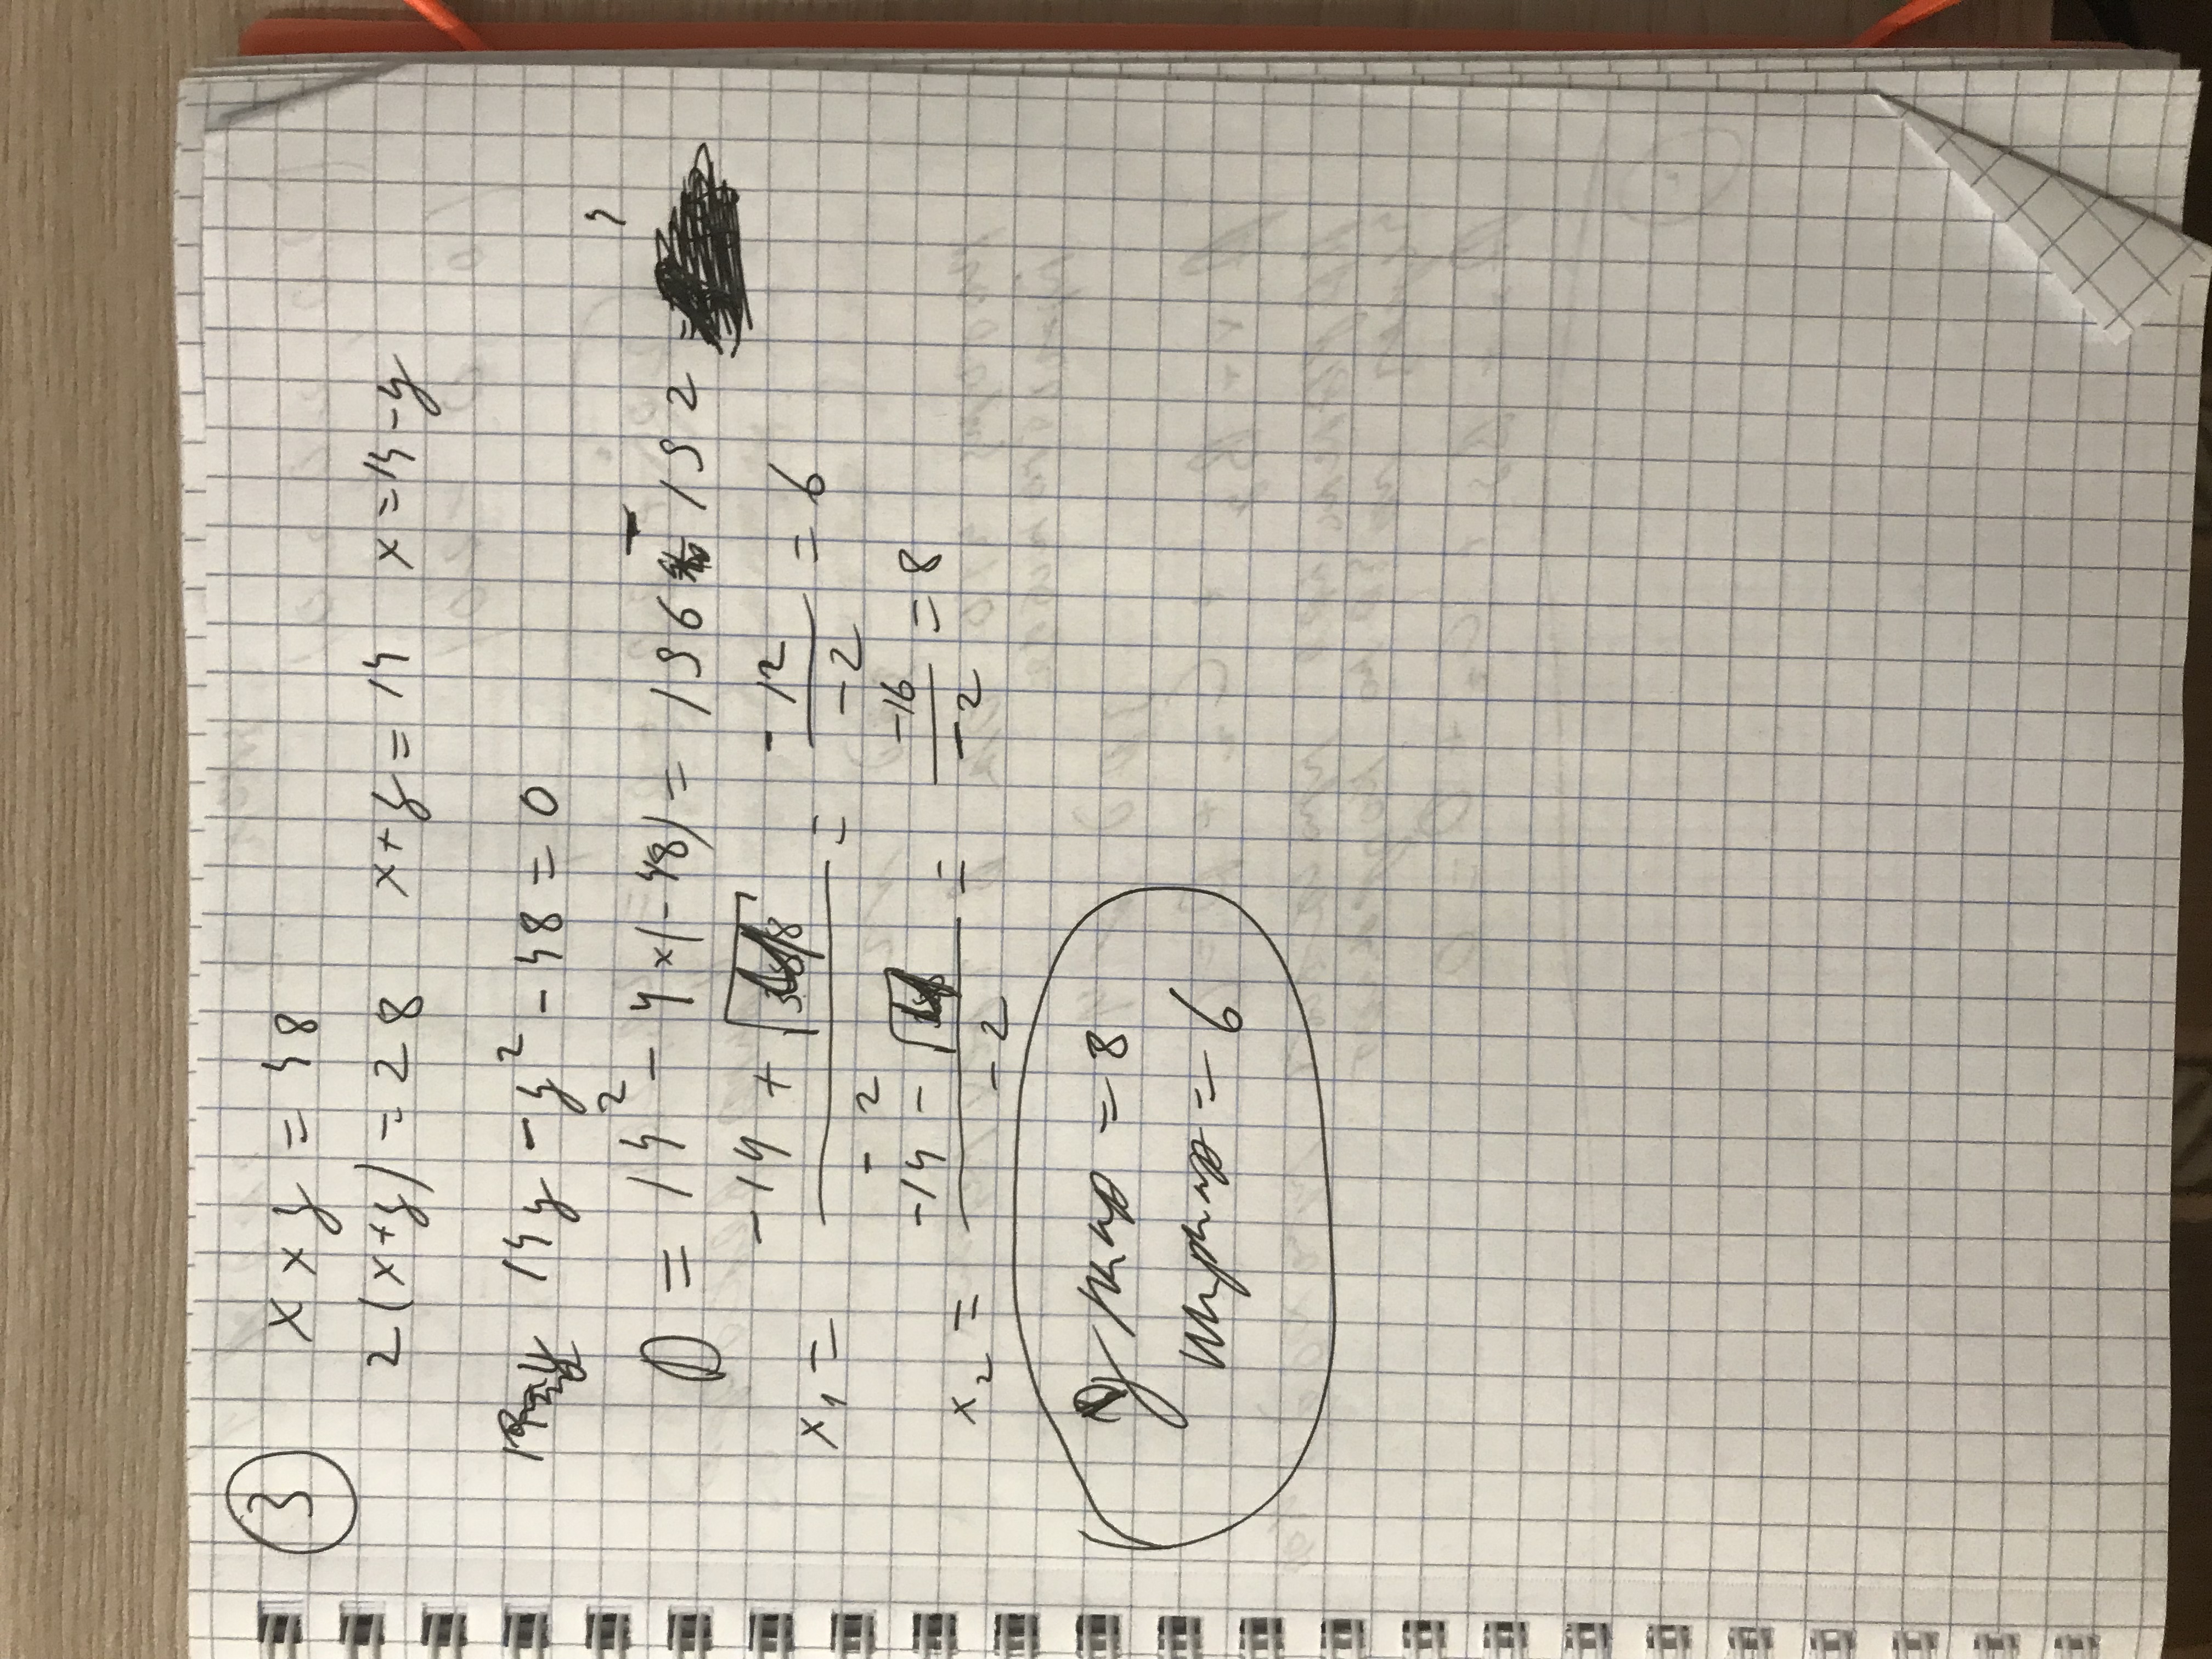 3 x × y = 48
2(x+y) = 28 x+y = 14 x = 14-y
14y - y² - 48 = 0
D = 14² - 4×(-48) = 196 - 192 = 4
x₁ = (-14 + √) / -2 = -12 / -2 = 6
x₂ = (-14 - √) / -2 = -16 / -2 = 8
= 8
= 6